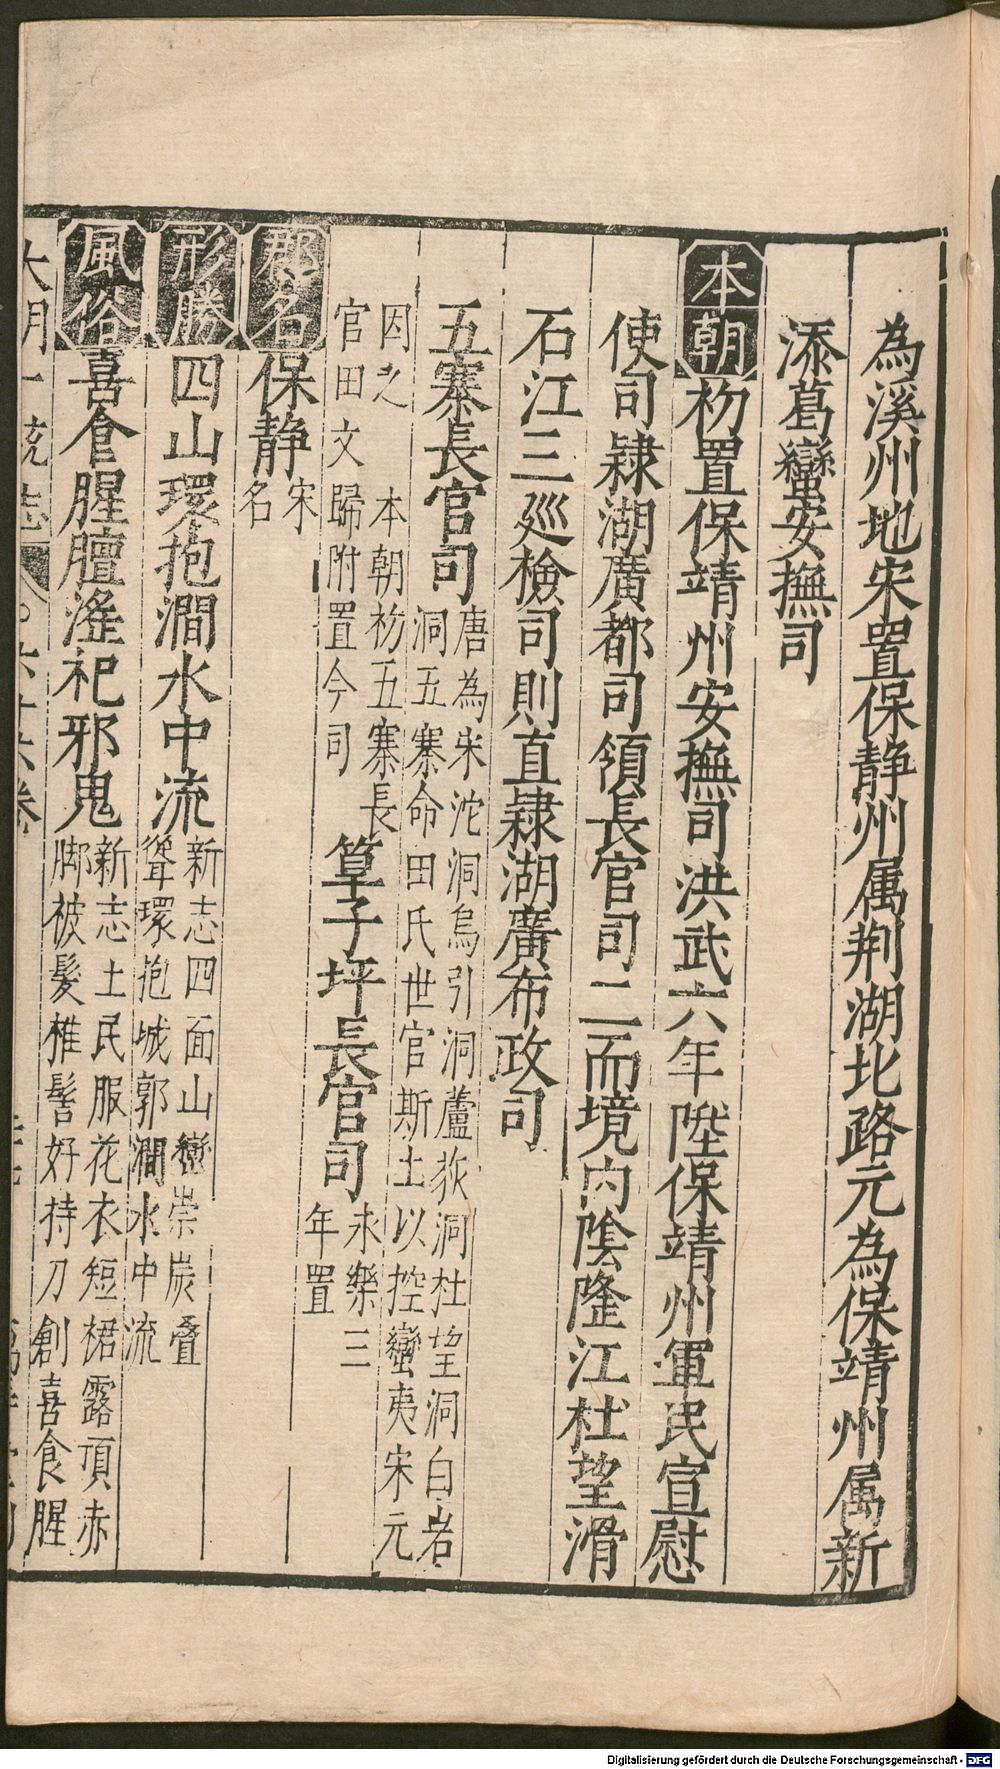 為溪州地宋置保静州属荆湖北路元為保靖州属新
添葛蠻安撫司
本朝 初置保靖州安撫司洪武六年陞保靖州軍民宣慰
使司隸湖廣都司領長官司二而境内陰隆江杜望滑
石江三廵檢司則直隸湖廣布政司
五寨長官司
唐為宋沱洞烏引洞蘆荻洞杜望洞白岩
洞五寨命田氏世官斯土以控蠻夷宋元
因之 本朝初五寨長
官田文歸附置今司
算子坪長官司
永樂三
年置
郡名 保静
宋
名
形勝 四山環抱澗水中流
新志四面山巒崇炭叠
聳環抱城郭澗水中流
風俗 喜食腥膻滛祀邪鬼
新志土民服花衣短裙露頂赤
脚被髮椎髻好持刀創喜食腥
大明一統志
六十六卷
Digitalisierung gefördert durch die Deutsche Forschungsgemeinschaft - DFG